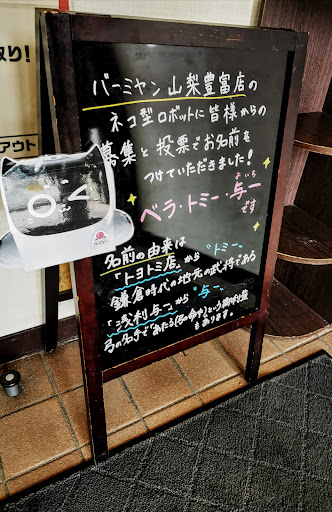 取り!
アウト
バーミヤン山梨豊富店の
ネコ型ロボットに皆様からの
募集と投票でお名前を
つけていただきました!
よいち
ベラ・トミー・与一
です
名前の由来は
「トヨトミ店」から "トミー"、
鎌倉時代の地元の武将である
「浅利与一」から "与一"
弓の名手で
もあります。